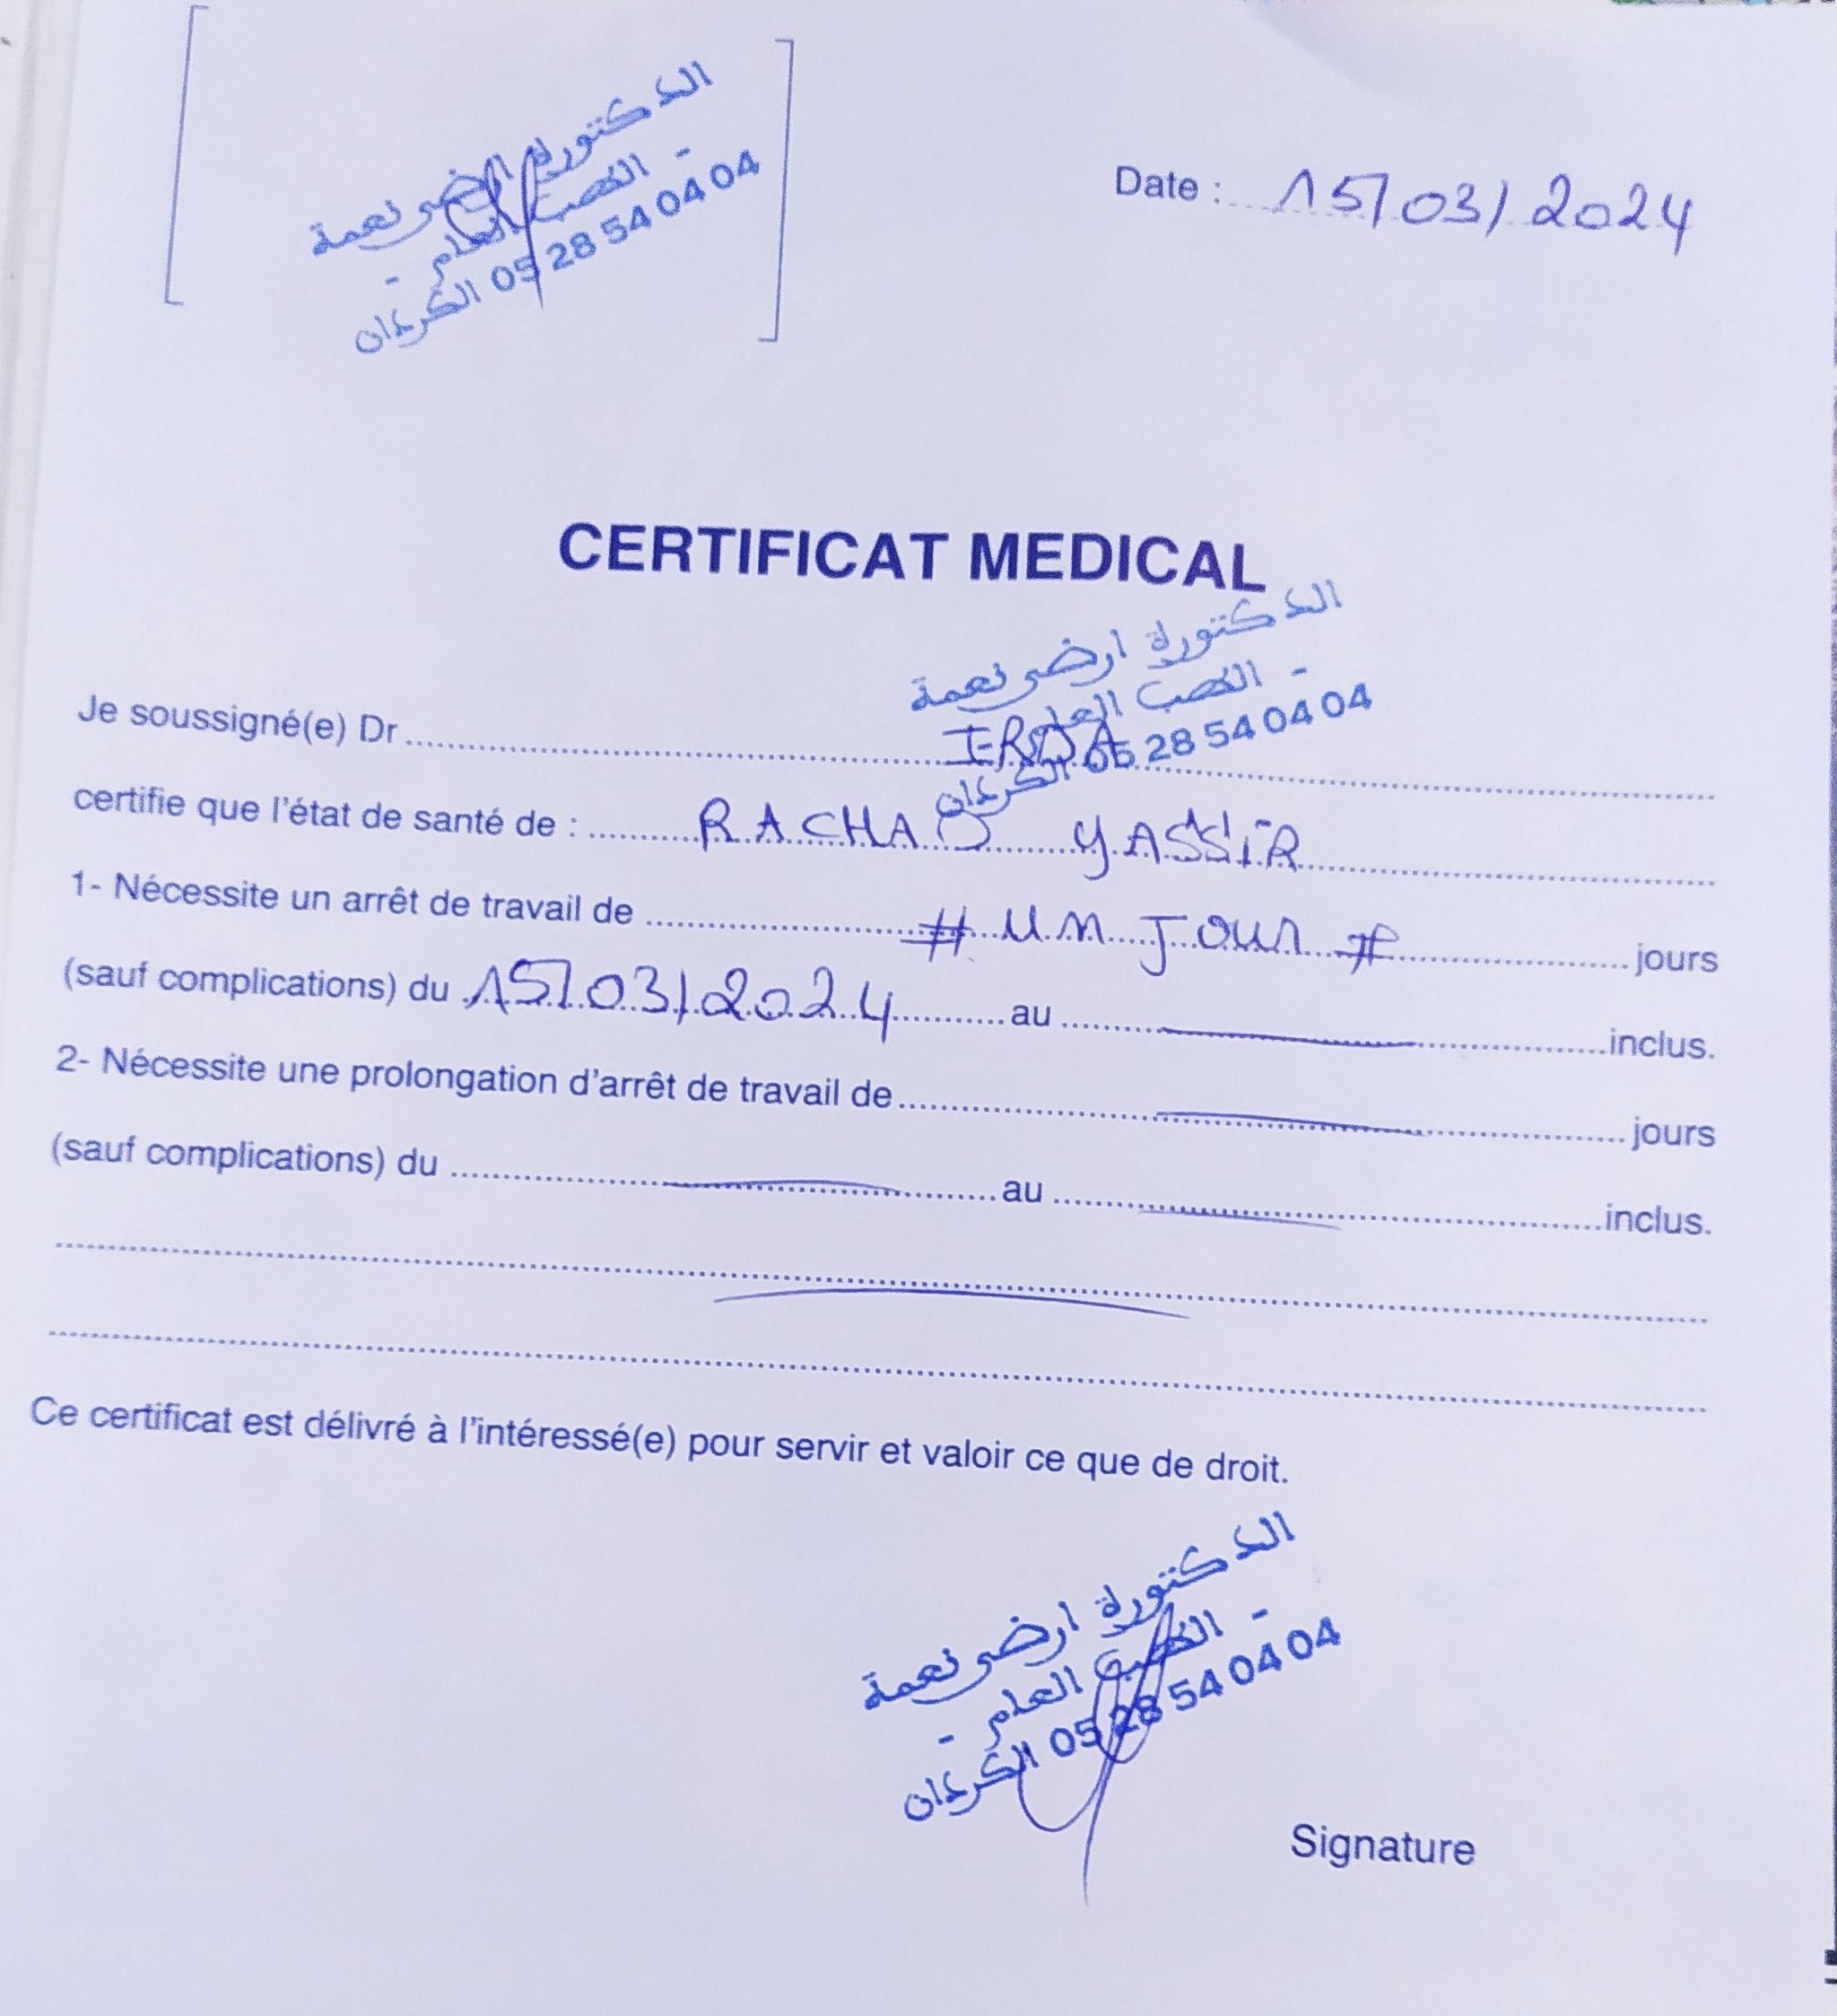 الدكتورة ارضى نعمة
- الطب العام -
05 28 54 04 04 الكردان
Date : 15/03/2024
CERTIFICAT MEDICAL
الدكتورة ارضى نعمة
- الطب العام
05 28 54 04 04 الكردان
Je soussigné(e) Dr IRDA
certifie que l'état de santé de : RACHAD YASSIR
1- Nécessite un arrêt de travail de # un Jour # jours
(sauf complications) du 15/03/2024 au inclus.
2- Nécessite une prolongation d'arrêt de travail de jours
(sauf complications) du au inclus.
Ce certificat est délivré à l'intéressé(e) pour servir et valoir ce que de droit.
الدكتورة ارضى نعمة
- الطب العام -
05 28 54 04 04 الكردان
Signature